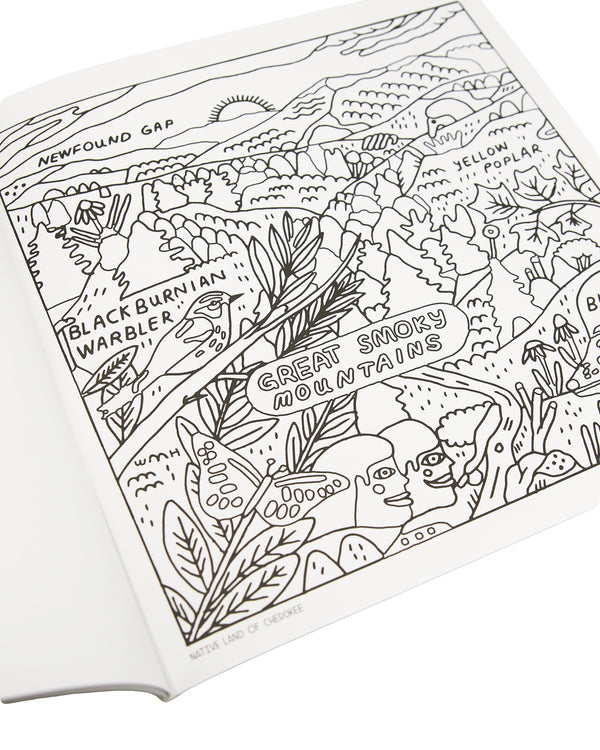 NEWFOUND GAP
YELLOW
POPLAR
BLACKBURNIAN
WARBLER
GREAT SMOKY
MOUNTAINS
NATIVE LAND OF CHEROKEE